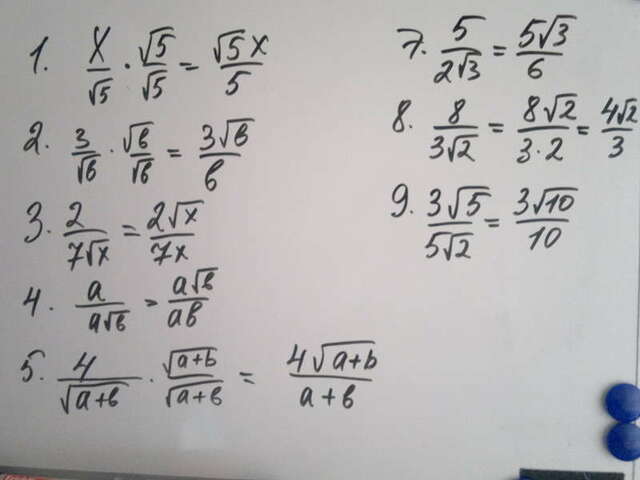 1. x/√5 · √5/√5 = √5 x/5
2. 3/√в · √в/√в = 3√в/в
3. 2/7√x = 2√x/7x
4. a/a√в = a√в/aв
5. 4/√a+в · √a+b/√a+в = 4√a+b/a+в
7. 5/2√3 = 5√3/6
8. 8/3√2 = 8√2/3·2 = 4√2/3
9. 3√5/5√2 = 3√10/10